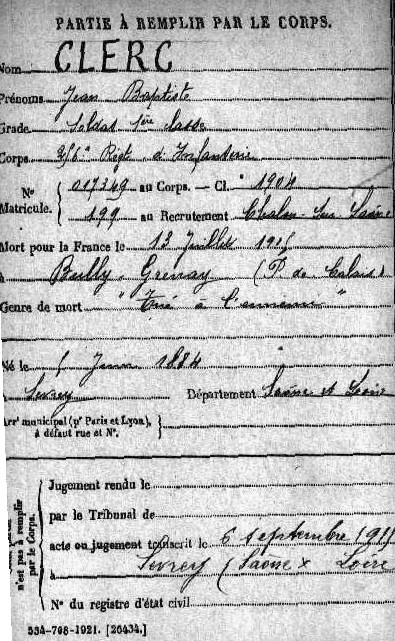 PARTIE À REMPLIR PAR LE CORPS.
Nom CLERC
Prénoms Jean Baptiste
Grade Soldat 1ère classe
Corps 256e Régt d'Infanterie
N° Matricule. { 017349 au Corps. — Cl. 1904
199 au Recrutement Chalon sur Saône
Mort pour la France le 13 Juillet 1915
à Bully-Grenay (P. de Calais)
Genre de mort "Tué à l'ennemi"
Né le 5 Juin 1884
à Sevrey Département Saône et Loire
Arrt municipal (pr Paris et Lyon),
à défaut rue et N°.
n'est pas à remplir
par le Corps.
Jugement rendu le
par le Tribunal de
acte ou jugement transcrit le 6 septembre 1915
à Sevrey (Saône & Loire
N° du registre d'état civil
534-708-1921. [26434.]